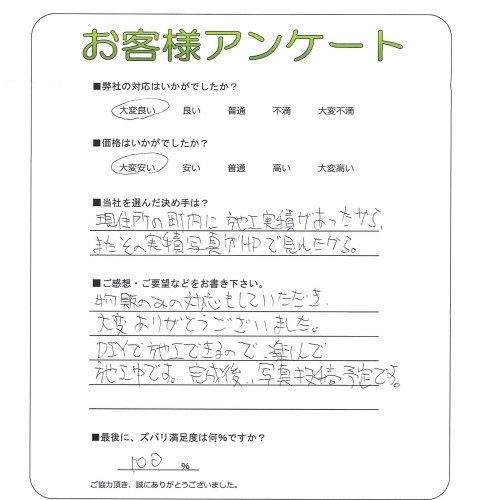 お客様アンケート
■弊社の対応はいかがでしたか？
大変良い 良い 普通 不満 大変不満
■価格はいかがでしたか？
大変安い 安い 普通 高い 大変高い
■当社を選んだ決め手は？
現住所の町内に施工実績があったから、
またその実績写真がHPで見れたから。
■ご感想・ご要望などをお書き下さい。
物販のみの対応もしていただき、
大変ありがとうございました。
DIYで施工できるので、楽しんで
施工中です。完成後、写真投稿予定です。
■最後に、ズバリ満足度は何％ですか？
100 ％
ご協力頂き、誠にありがとうございました。